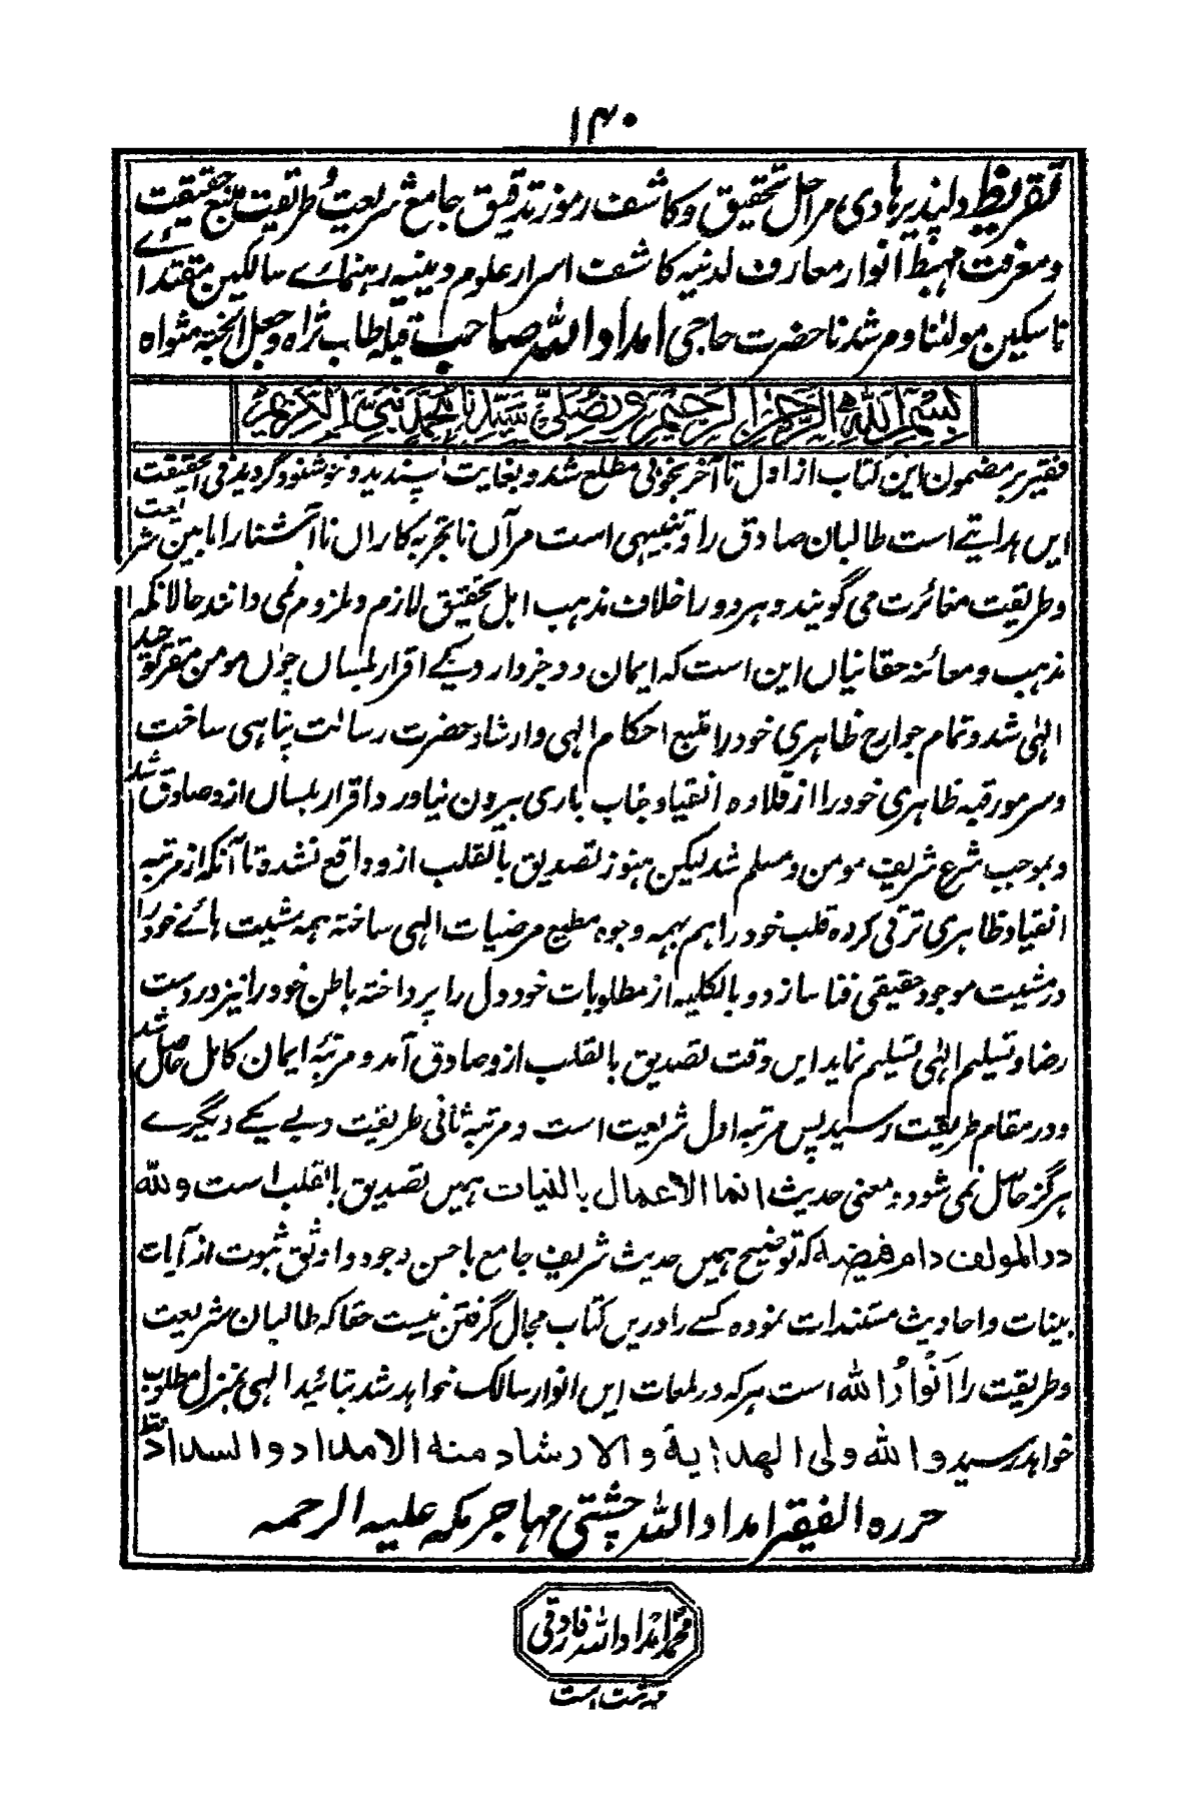 ۱۴۰
تقریظ دلپذیر ہادی مراحل تحقیق و کاشف رموز تدقیق جامع شریعت و طریقت منبع حقیقت
و معرفت مہبط انوار معارف لدنیہ کاشف اسرار علوم دینیہ رہنمائے سالکین مقتدائے
ناسکین مولٰنا و مرشدنا حضرت حاجی امداد اللہ صاحب قبلہ طاب ثراہ و جعل الجنۃ مثواہ
بسم اللہ الرحمن الرحیم و نصلی سیدنا محمد نبی الکریم
فقیر بر مضمون این کتاب از اول تا آخر بخوبی مطلع شد و بغایت پسندید و خوشنود گردید فی الحقیقت
ایں ہدایتے است طالبان صادق را و تنبیہی است مر آں ناتجربہ کاراں نا آشنا را ما بین شریعت
و طریقت مغائرت می گویند و ہر دو را خلاف مذہب اہل تحقیق لازم و ملزوم نمی دانند حالانکہ
مذہب و معائنہ حقانیاں این است کہ ایمان دو جز دارد یکے اقرار بلساں چوں مومن مقر توحید
الہٰی شد و تمام جوارح ظاہری خود را متبع احکام الہی و ارشاد حضرت رسالت پناہی ساخت
و سر مو رقبہ ظاہری خود را از قلادہ انقیاد جناب باری بیرون نیاورد اقرار بلساں ازو صادق شد
و بموجب شرع شریف مومن و مسلم شد لیکن ہنوز تصدیق بالقلب ازو واقع نشدہ تا آنکہ از مرتبہ
انقیاد ظاہری ترقی کردہ قلب خود را ہم بہمہ وجوہ مطیع مرضیات الہی ساختہ ہمہ مشیت ہائے خود را
در مشیت موجود حقیقی فنا سازد و بالکلیہ از مطلوبات خود دل را پرداختہ باطن خود را نیز در دست
رضا و تسلیم الہٰی تسلیم نماید ایں وقت تصدیق بالقلب ازو صادق آمد و مرتبۂ ایمان کامل حاصل شد
و در مقام طریقت رسید پس مرتبہ اول شریعت است و مرتبہ ثانی طریقت و بے یکے دیگرے
ہرگز حاصل نمی شود و معنی حدیث انما الاعمال بالنیات ہمیں تصدیق بالقلب است و للہ
در المولف دام فیضہ کہ توضیح ہمیں حدیث شریف جامع باحسن وجوہ و اوثق ثبوت از آیات
بینات و احادیث مستندات نمودہ کسے را دریں کتاب مجال گرفتن نیست حقا کہ طالبان شریعت
و طریقت را اَنْوَارُ اللہ است ہر کہ در لمعات ایں انوار سالک خواہد شد بتائید الہی بمنزل مطلوب
خواہد رسید و اللہ ولی الہدایۃ و الارشاد منہ الامداد و السداد فقط
حررہ الفقیر امداد اللہ چشتی مہاجر مکہ علیہ الرحمہ
محمد امداد اللہ فاروقی